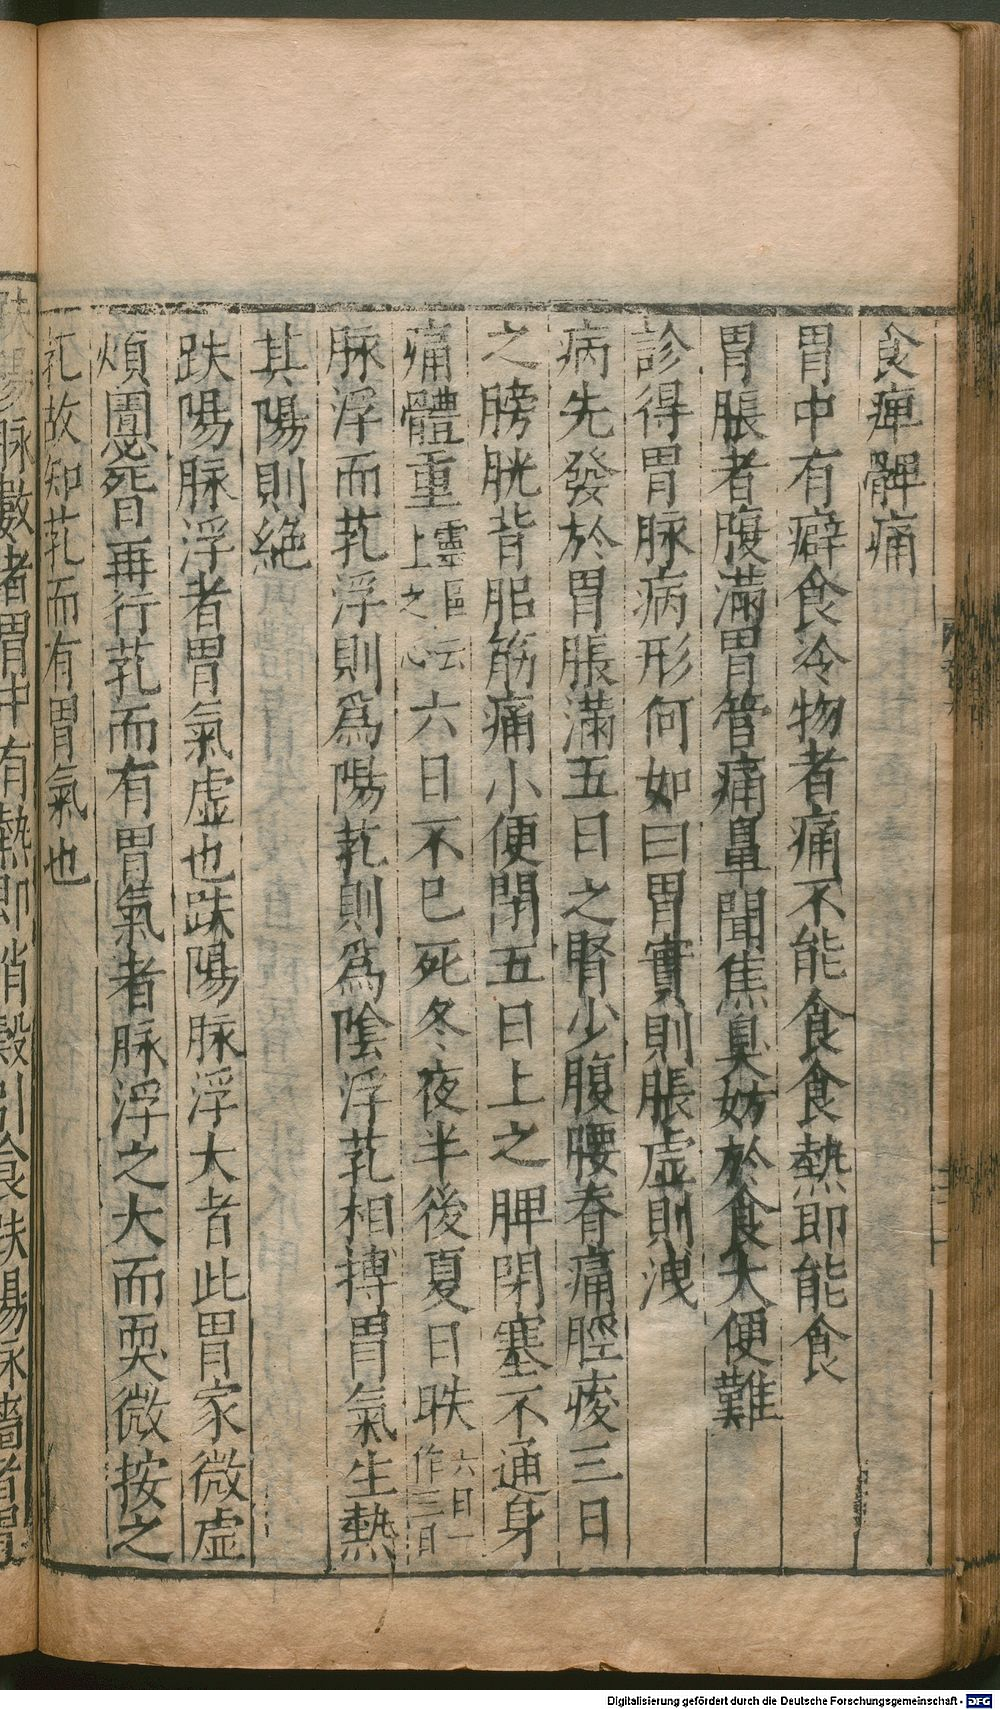 食痺髀痛
胃中有癖食冷物者痛不能食食熱即能食
胃脹者腹滿胃管痛鼻聞焦臭妨於食大便難
診得胃脉病形何如曰胃實則脹虚則洩
病先發於胃脹滿五日之腎少腹腰脊痛脛痠三日
之膀胱背𦛗筋痛小便閉五日上之脾閉塞不通身
痛體重靈樞云上之心六日不已死冬夜半後夏日昳六日一作三日
脉浮而芤浮則爲陽芤則爲陰浮芤相搏胃氣生熱
其陽則絶
趺陽脉浮者胃氣虚也趺陽脉浮大者此胃家微虚
煩圊必日再行芤而有胃氣者脉浮之大而耎微按之
芤故知芤而有胃氣也
趺陽脉數者胃中有熱即消穀引食趺陽脉濇者胃
Digitalisierung gefördert durch die Deutsche Forschungsgemeinschaft - DFG